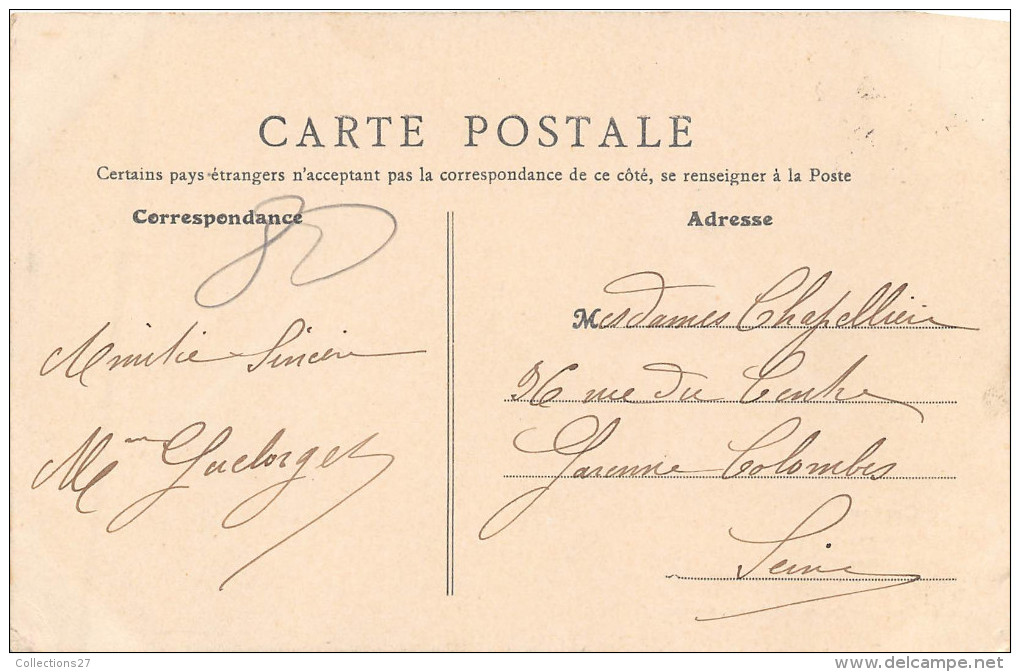 CARTE POSTALE
Certains pays étrangers n'acceptant pas la correspondance de ce côté, se renseigner à la Poste
Correspondance
Adresse
80
Amitié Sincère
Mme Guelorget
Mesdames Chapellière
36 rue du Centre
Garenne Colombes
Seine
Collections27
www.delcampe.net